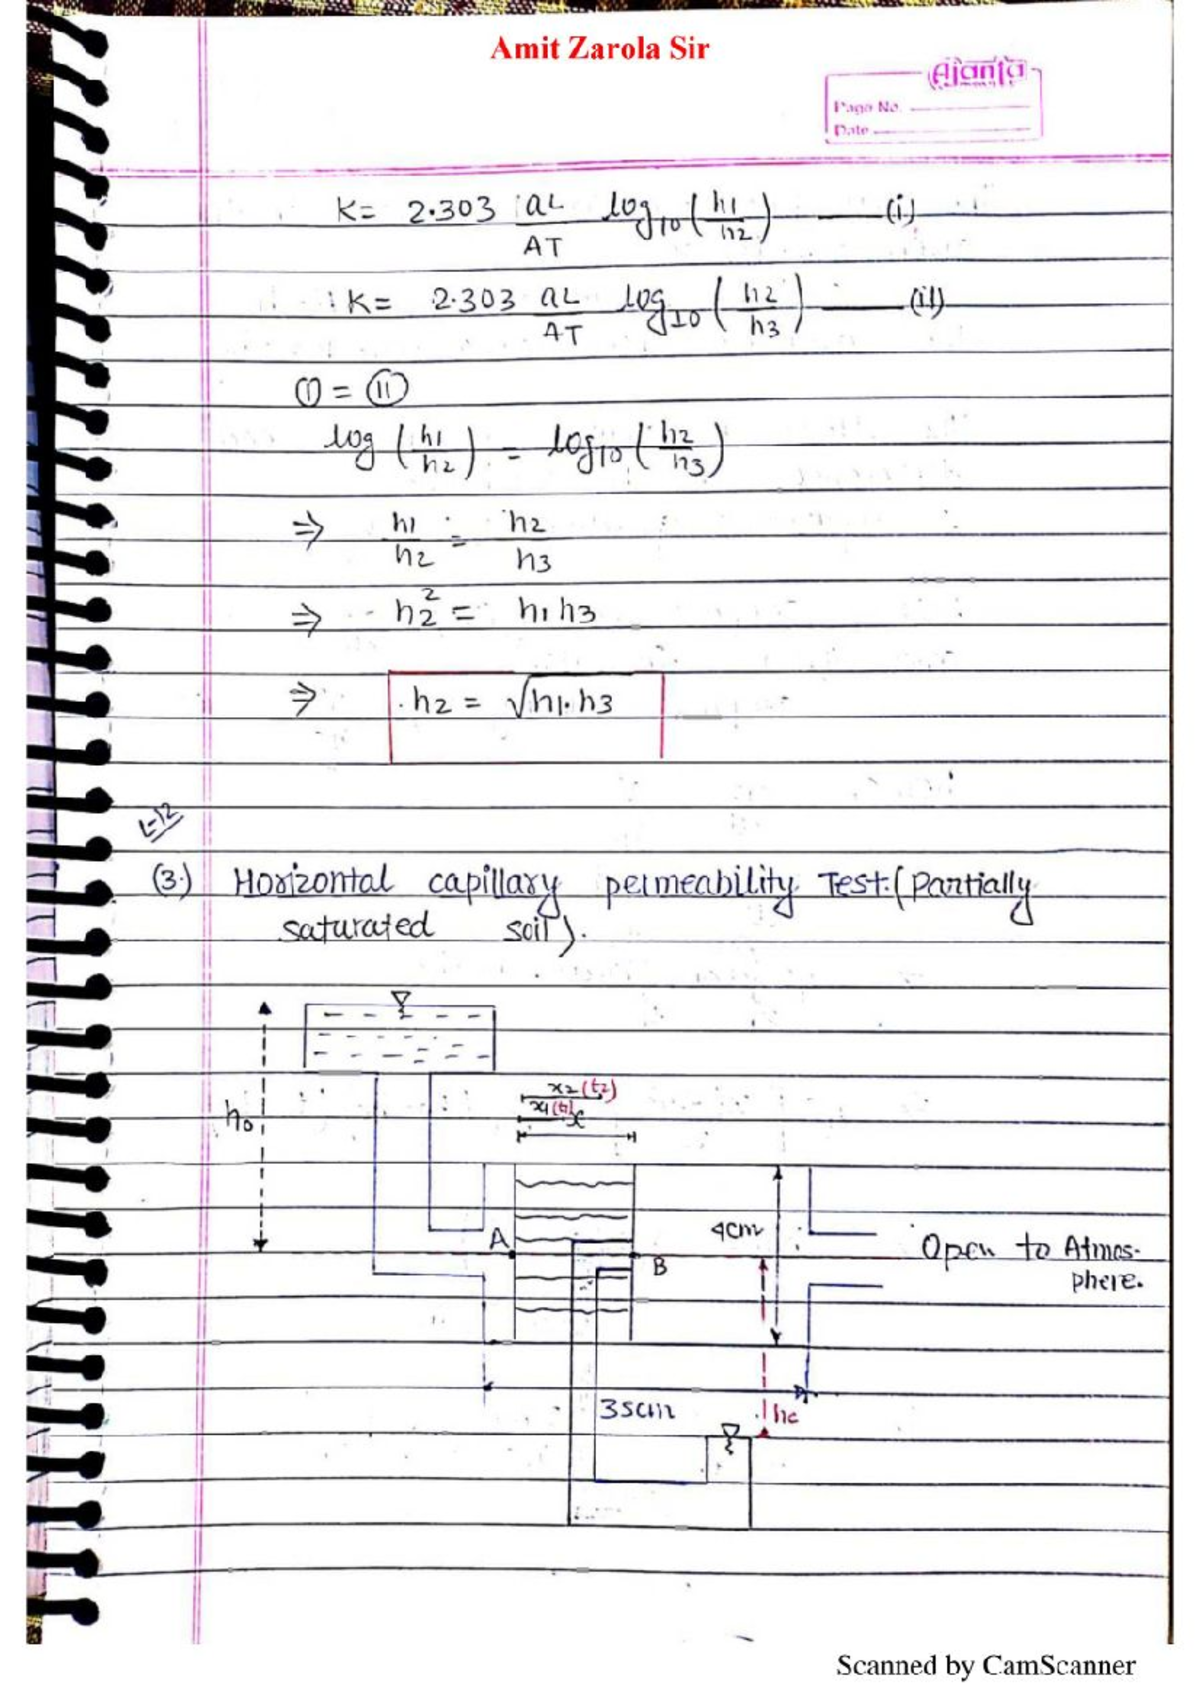 Amit Zarola Sir
Ajanta
Page No.
Date
K = 2.303 aL/AT log10 (h1/h2) — (i)
K = 2.303 aL/AT log10 (h2/h3) — (ii)
(I) = (II)
log (h1/h2) = log10 (h2/h3)
⇒ h1/h2 = h2/h3
⇒ h2² = h1 h3
⇒ h2 = √h1.h3
L-12
(3.) Horizontal capillary permeability Test.(Partially
saturated soil).
h0
x2(t2)
x1(t1)
x
A
B
4cm
Open to Atmos-
phere.
35cm
hc
Scanned by CamScanner